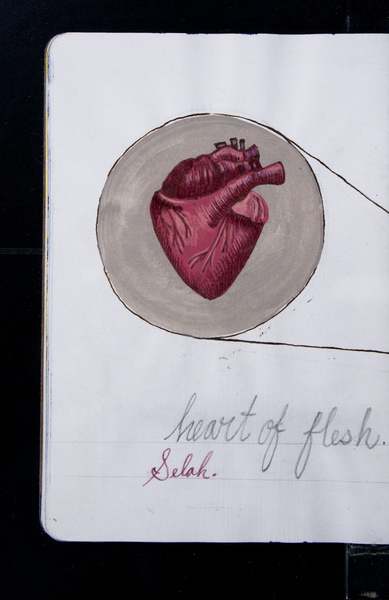 heart of flesh.
Selah.